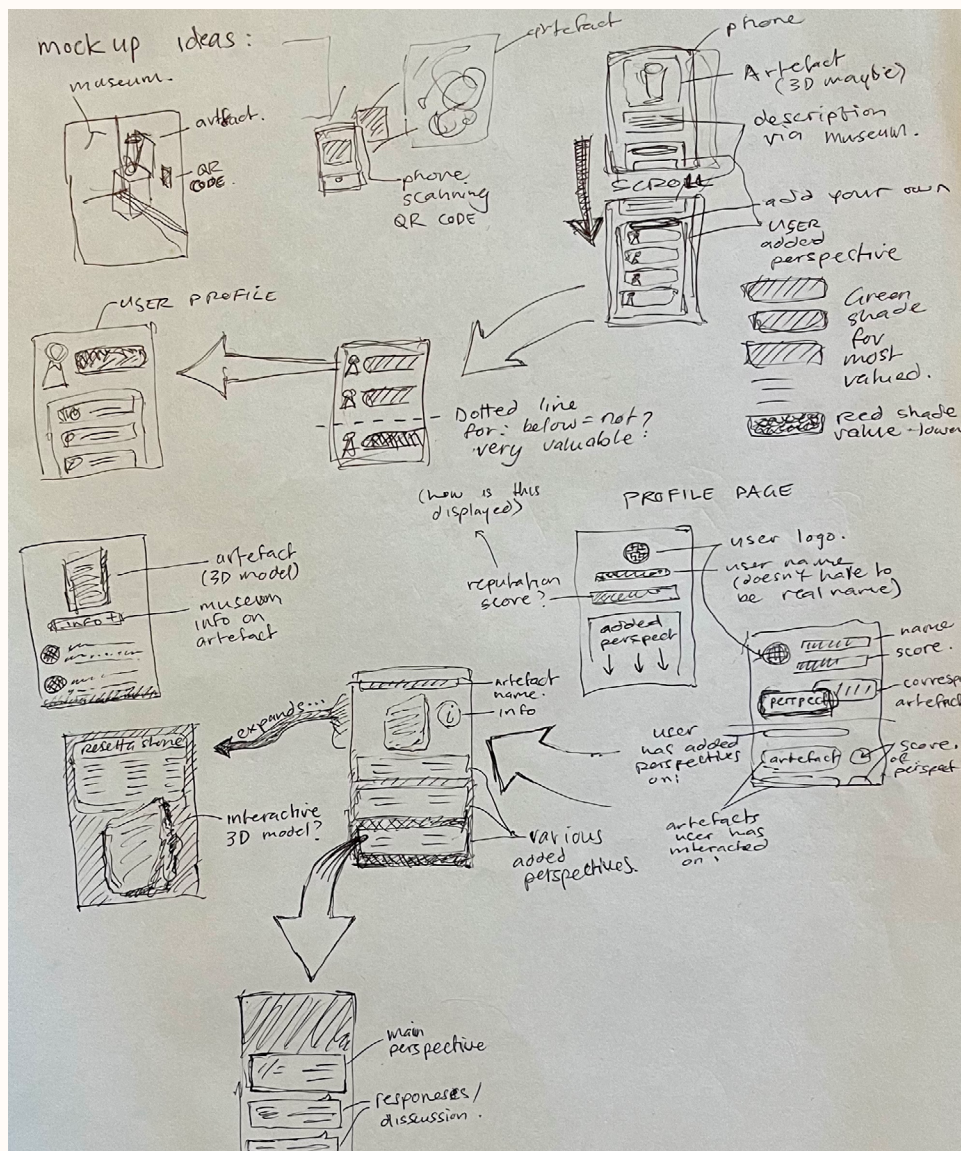 mock up ideas:
museum.
artfact.
QR
CODE.
artefact
phone
scanning
QR CODE
phone
Artefact
(3D maybe)
description
via museum.
SCROLL
add your own
USER
added
perspective
Green
shade
for
most
valued.
red shade
value - lower
USER PROFILE
Dotted line
for: below = not?
very valuable!
(how is this
displayed)
reputation
score?
PROFILE PAGE
user logo.
user name
(doesn't have to
be real name)
added
perspect
name
score.
corresp
artefact
perspect
user
has added
perspectives
on:
artefact
score.
of
perspect
artefacts
user has
interacted
on:
artefact
(3D model)
info +
museum
info on
artefact
artefact
name.
i
info
expands...
rosetta stone
interactive
3D model?
various
added
perspectives.
main
perspective
responeses/
disscussion.